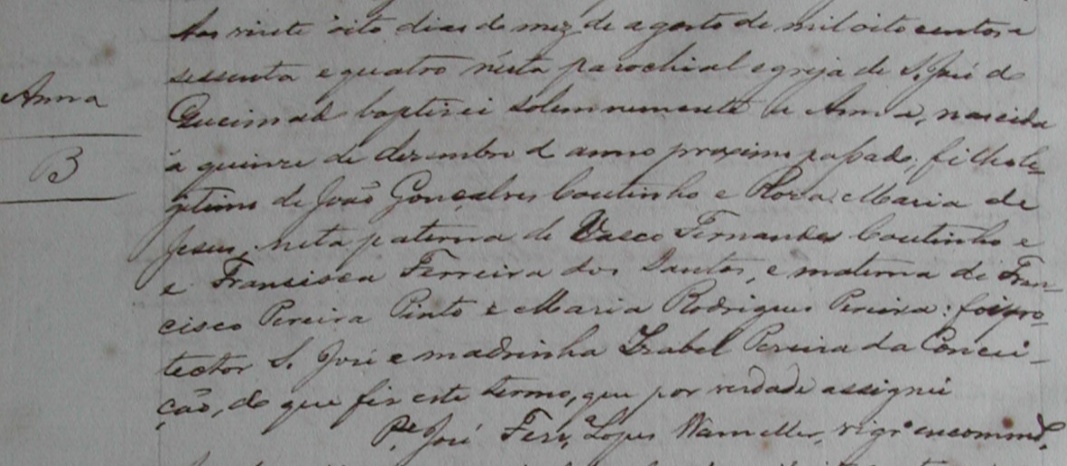 Aos vinte oito dias do mez de agosto de mil oito centos e
sessenta e quatro nesta parochial egreja de S. José do
Anna
Queimado baptisei solemnemente a Anna, nascida
B
a quinze de dezembro d anno proximo passado, filha le-
gitima de João Gonçalves Coutinho e Rosa Maria de
Jesus, neta paterna de Vasco Fernandes Coutinho e
e Francisca Ferreira dos Santos, e materna de Fran-
cisco Pereira Pinto e Maria Rodrigues Pereira: foi pro-
tector S. José e madrinha Izabel Pereira da Concei-
ção, do que fiz este termo, que por verdade assignei
Pe. José Ferra. Lopes vigro. encommdo.